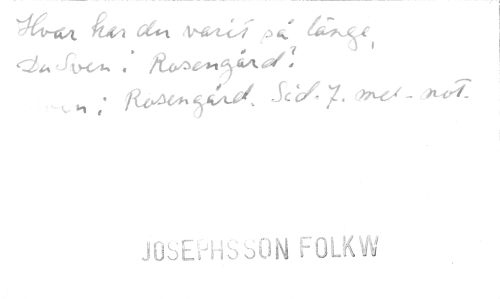 Hvar har du varit så länge,
Du Sven i Rosengård?
i Rosengård. Sid. 7. mel-not.
JOSEPHSSON FOLKW